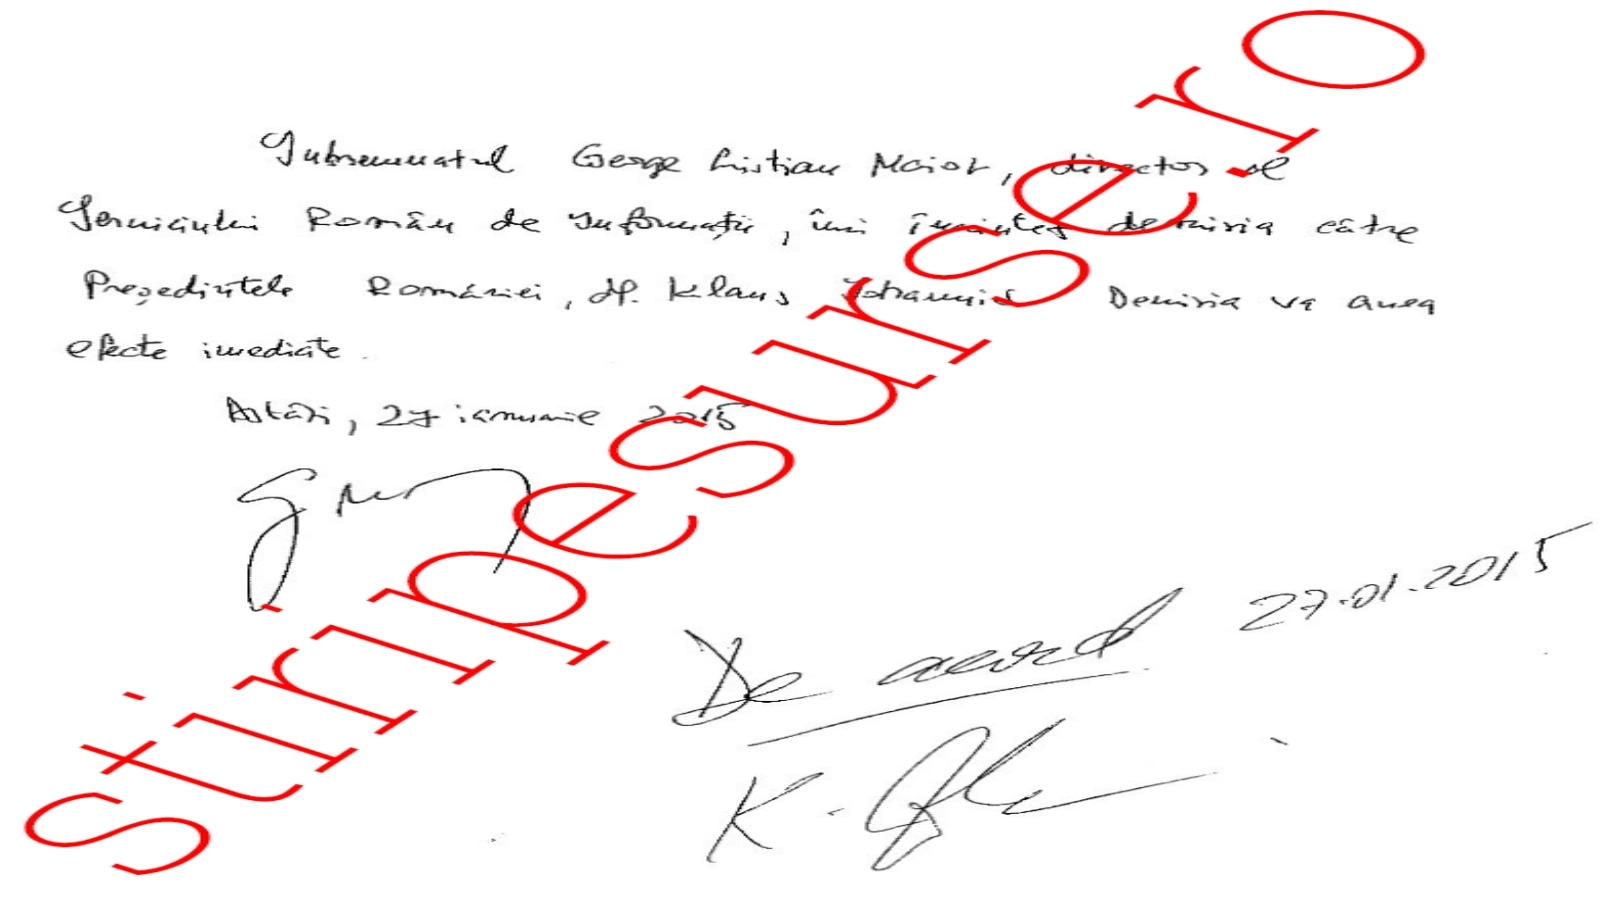 Subsemnatul George Cristian Maior, director al
Serviciului Român de Informații, îmi înaintez demisia către
Președintele României, dl. Klaus Iohannis Demisia va avea
efecte imediate.
Astăzi, 27 ianuarie 2015
De acord 27.01.2015
K.
stiripesurse.ro